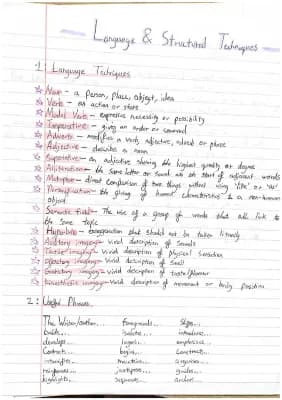 Language & Structural Techniques
1: Language Techniques
Noun - a person, place, object, idea
Verb - an action or state
Modal Verb - expresses necessity or possibility
Imperative - giving an order or command
Adverb - modifies a verb, adjective, adverb or phrase
Adjective - describes a noun
Superlative - an adjective showing the highest quality or degree
Alliteration - the same letter or sound at the start of adjacent words
Metaphor - direct comparison of two things without using 'like' or 'as'
Personification - the giving of human characteristics to a non-human
object
Semantic field - The use of a group of words that all link to
the same topic
Hyperbole - exaggeration that should not be taken literally
Auditory imagery - vivid description of sounds
Tactile imagery - vivid description of physical sensation
Olfactory imagery - vivid description of smell
Gustatory imagery - vivid description of taste/flavour
Kinaesthetic imagery - vivid description of movement or body position
2: Useful Phrases
The Writer/author... foregrounds...
builds... introduces...
develops... emphasises...
Contrasts... begins... constructs...
intensifies...
juxtaposes... guides...
highlights...